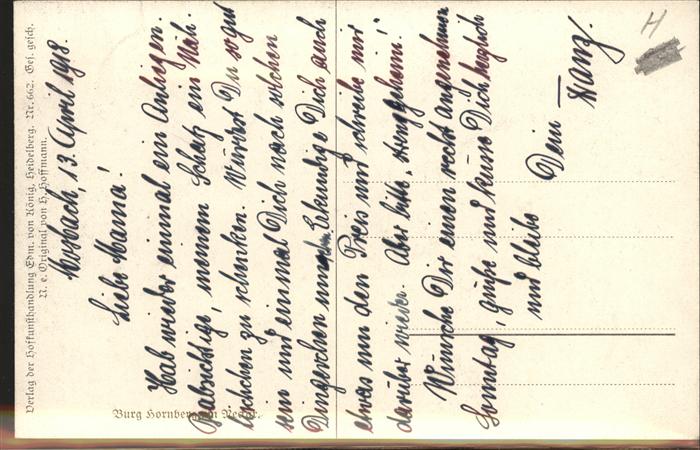 Verlag der Hofkunsthandlung Edm. von König, Heidelberg. Nr. 662. Ges. gesch.
N. e. Original von H. Hoffmann.
Mosbach, 13. April 1918.
Liebe Mama!
Hab wieder einmal ein Anliegen.
Beabsichtige, meinem Schatz ein Näh-
tischchen zu schenken. Würdest Du so gut
sein und einmal Dich nach solchen
Dingerchen umsehn. Erkundige Dich auch
etwas um den Preis und schreibe mir
darüber wieder. Aber bitte, "strenggeheim!"
Wünsche Dir einen recht angenehmen
Sonntag, grüße und küsse Dich herzlich
und bleibe
Dein
Franz.
Burg Hornberg am Neckar.
H